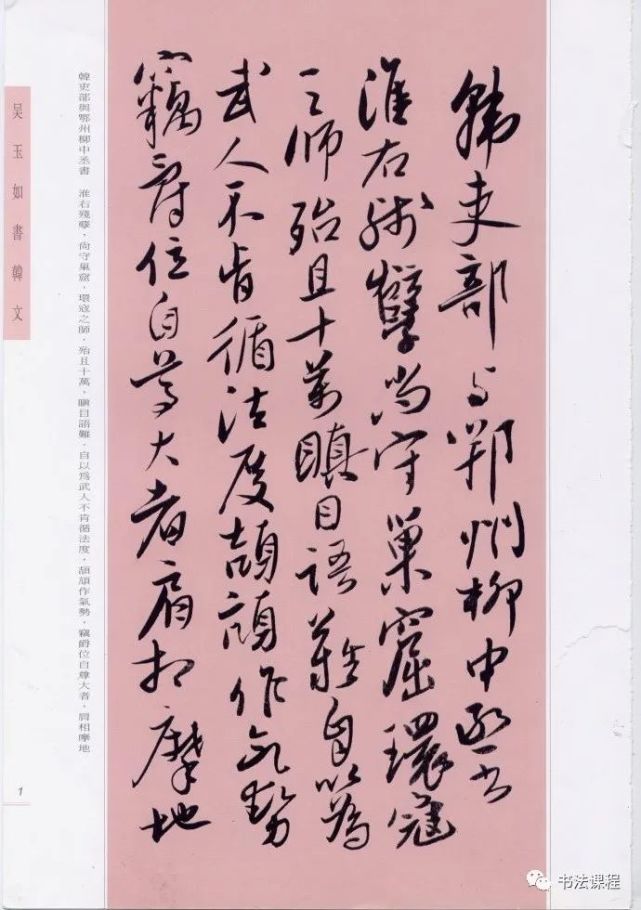 韓吏部與鄂州柳中丞書
淮右殘孽尚守巢窟環寇
之師殆且十萬瞋目語難自以為
武人不肯循法度頡頏作氣勢
竊爵位自尊大者肩相摩地
韓吏部與鄂州柳中丞書　淮右殘孽，尚守巢窟，環寇之師，殆且十萬，瞋目語難，自以爲武人不肯循法度，頡頏作氣勢，竊爵位自尊大者，肩相摩地
吴玉如書韓文
1
书法课程